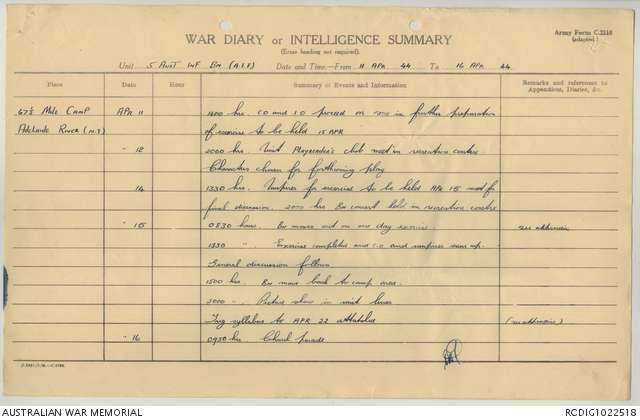 Army Form C.2118
(adapted)
WAR DIARY or INTELLIGENCE SUMMARY
(Erase heading not required).
Unit 5 AUST INF BN (A.I.F.) Date and Time—From 11 APR 44 To 16 APR 44
Place Date Hour Summary of Events and Information Remarks and references to Appendices, Diaries, &c.
67½ Mile CAMP APR 11 1400 hrs. CO and I.O proceed on recce in further preparation
Adelaide River (N.T) of exercise to be held 15 APR
" 12 2000 hrs. Unit Playreader's club meet in recreation centre
Characters chosen for forthcoming play
14 1330 hrs. Umpires for exercise to be held APR 15 meet for
final discussion. 2000 hrs Bn concert held in recreation centre
" 15 0830 hours. Bn moves out on one day exercise see
1330 ". Exercise completed and C.O and umpires sum up.
General discussion follows
1500 hrs. Bn move back to camp area.
2000 ". Picture show in unit lines
Trg syllabus to APR 22 attached
" 16 0930 hrs Church parade
AUSTRALIAN WAR MEMORIAL RCDIG1022518